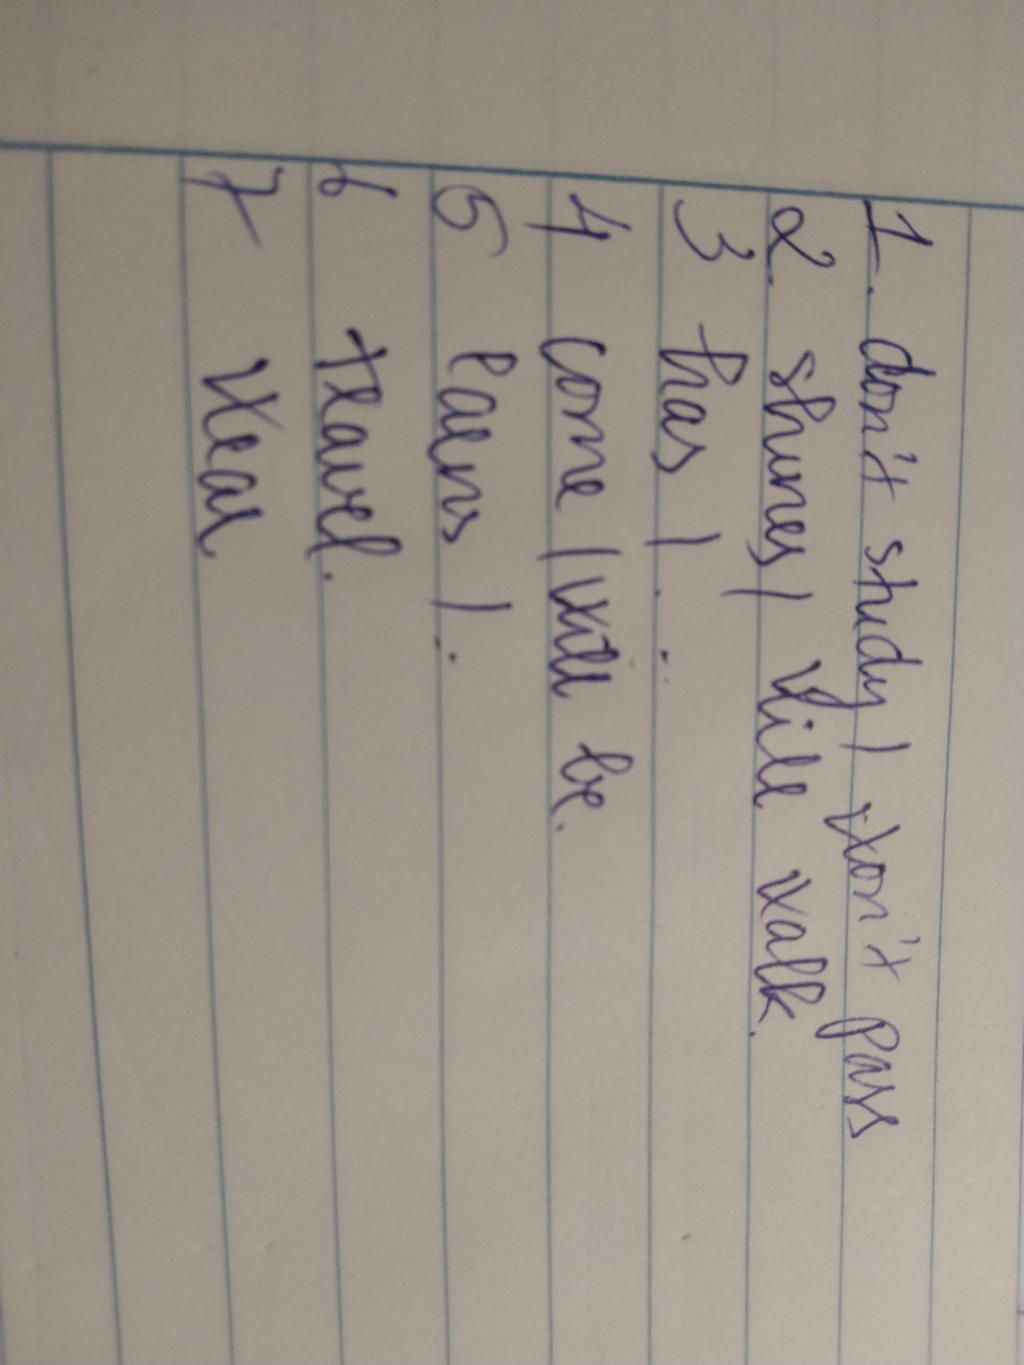 1. don't study / won't pass
2. shines / will walk.
3 has / . ..
4 come / will be.
5 learns / ..
6 travel.
7 wear